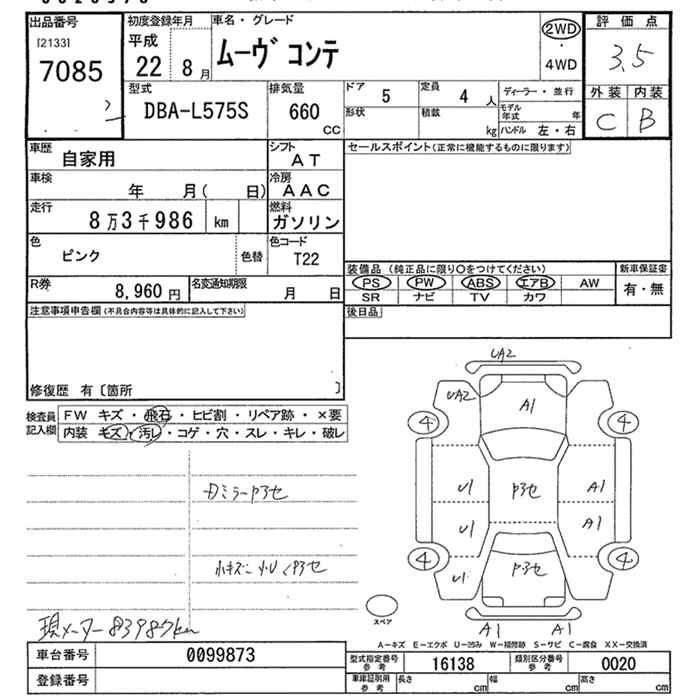 出品番号 初度登録年月 車名・グレード 評価点
[2133] 平成 ムーヴ コンテ 2WD 3.5
7085 22 8月 ・ 4WD
型式 排気量 ドア 5 定員 4 人 ディーラー・並行 外装 内装
DBA-L575S 660 CC 形状 積載 kg モデル年式 年 C B
ハンドル 左・右
車歴 自家用 シフト AT セールスポイント(正常に機能するものに限ります)
車検 年 月( 日) 冷房 AAC
走行 8万3千986 km 燃料 ガソリン
色 ピンク 色替 色コード T22
装備品 (純正品に限り○をつけてください) 新車保証書
R券 8,960円 名変通知期限 月 日 PS PW ABS エアB AW 有・無
SR ナビ TV カワ
注意事項申告欄(不具合内容等は具体的に記入して下さい) 後日品
修復歴 有〔箇所 〕
検査員記入欄 FW キズ・飛石・ヒビ割・リペア跡・×要
内装 キズ・汚レ・コゲ・穴・スレ・キレ・破レ
UA2
UA2 A1
4 4
U1 A1
U1 A1
4 4
U1
現メーター83987km
スペア A1 A1
A-キズ E-エクボ U-凹み W-補修跡 S-サビ C-腐食 XX-交換済
車台番号 0099873 型式指定番号 参考 16138 類別区分番号 参考 0020
登録番号 車庫証明用 参考 長さ cm 幅 cm 高さ cm